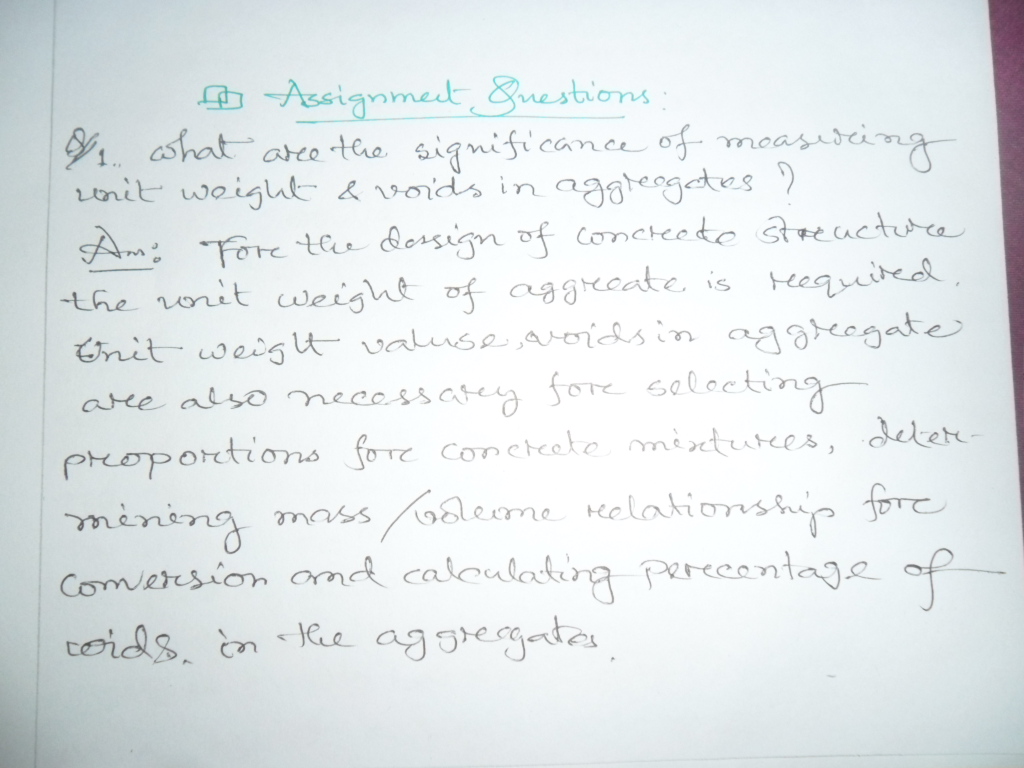 Assignment Questions:
Q1. What are the significance of measuring
unit weight & voids in aggregates?
Ans: For the design of concrete structure
the unit weight of aggreate is required.
Unit weight valuse, voids in aggregate
are also necessary for selecting
proportions for concrete mixtures, deter-
mining mass/volume relationship for
conversion and calculating percentage of
voids. in the aggregates.